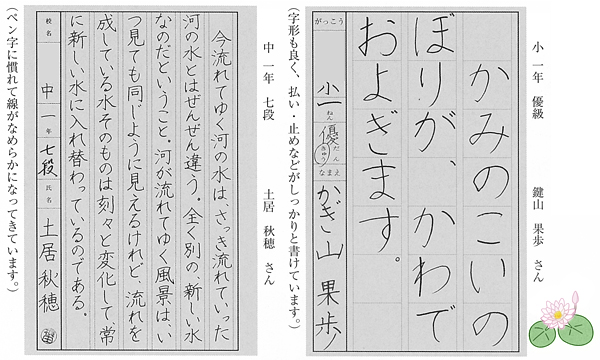 小一年 優級 鍵山 果歩 さん
かみのこいの
ぼりが、かわで
およぎます。
がっこう 小一ねん 優 だん きゅう なまえ かぎ山果歩
（字形も良く、払い・止めなどがしっかりと書けています。）
中一年 七段 土居 秋穂 さん
今流れてゆく河の水は、さっき流れていった
河の水とはぜんぜん違う。全く別の、新しい水
なのだということ。河が流れてゆく風景は、い
つ見ても同じように見えるけれど、流れを
成している水そのものは刻々と変化して、常
に新しい水に入れ替わっているのである。
校名 中一年 七段 氏名 土居秋穂
（ペン字に慣れて線がなめらかになってきています。）